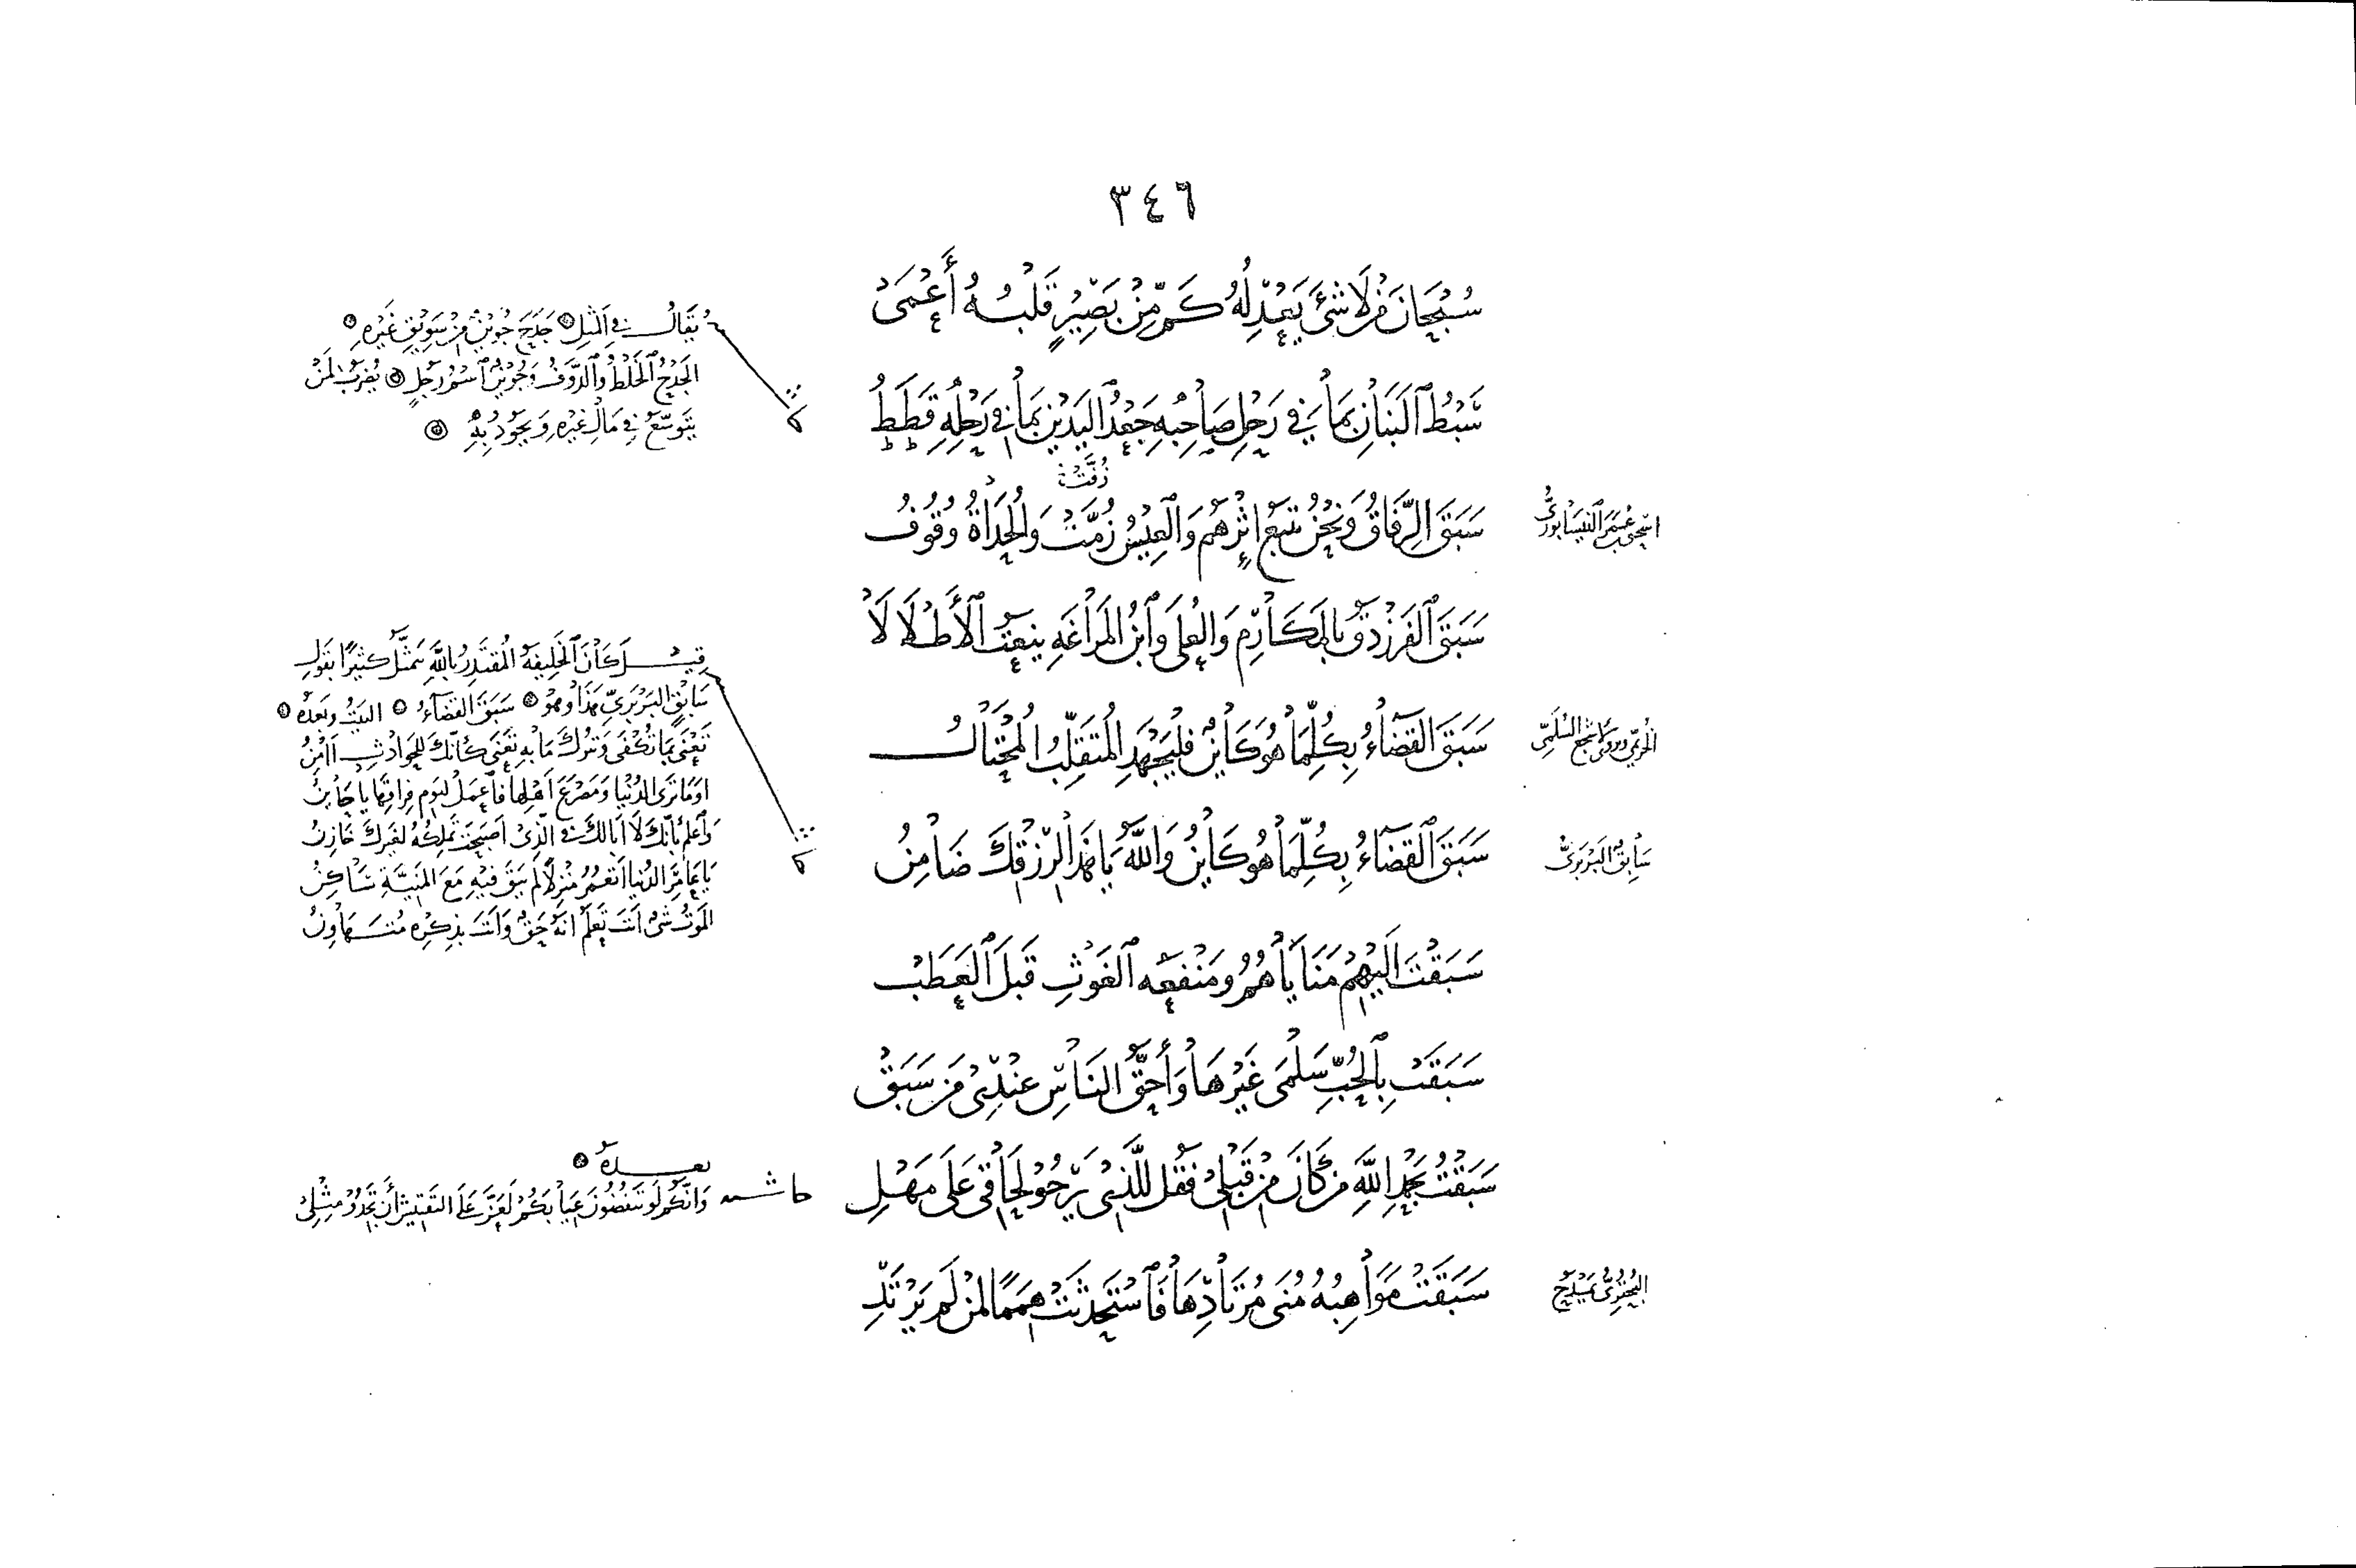 ٣٤٦
سُبْحَانَ مَنْ لَا شَىْءَ يَعْدِلُهُ كَمْ مِّنْ بَصِيْرٍ قَلْبُهُ أَعْمَى
سَبْطُ الْبَنَانِ بِمَا فِي رَحْلِ صَاحِبِهِ جَعْدُ الْيَدَيْنِ بِمَا فِي رَحْلِهِ قَطَطُ
يُقَالُ فِي الْمَثَلِ جَدَحَ جُوَيْنٌ مِنْ سَوِيْقِ غَيْرِهِ
الْجَدْحُ الْخَلْطُ وَالدَّوْفُ وَجُوَيْنٌ اسْمُ رَجُلٍ يُضْرَبُ لِمَنْ
يَتَوَسَّعُ فِي مَالِ غَيْرِهِ وَيَجُودُ بِهِ
زُفَّتْ
سَبَقَ الرِّفَاقُ وَنَحْنُ نَتْبَعُ إِثْرَهُمْ وَالْعِيْسُ زُمَّتْ وَالْحُدَاةُ وُقُوفُ
عُمَرَ النَّيْسَابُورِيُّ
سَبَقَ الْفَرَزْدَقُ بِالْمَكَارِمِ وَالْعُلَى وَابْنُ الْمَرَاغَةِ يَنْعِتُ الْأَطْلَالَا
سَبَقَ الْقَضَاءُ بِكُلِّمَا هُوَ كَائِنٌ فَلْيَجْهَدِ الْمُتَقَلِّبُ الْمُحْتَالُ
وَيُرْوَى لِأَشْجَعَ السُّلَمِيِّ
سَبَقَ الْقَضَاءُ بِكُلِّمَا هُوَ كَائِنٌ وَاللّٰهُ يَا هَذَا لِرِزْقِكَ ضَامِنُ
سَابِقٌ الْبَرْبَرِيُّ
قِيْلَ كَانَ الْخَلِيفَةُ الْمُقْتَدِرُ بِاللّٰهِ يَتَمَثَّلُ كَثِيْرًا بِقَولِ
سَابِقٍ الْبَرْبَرِيِّ هَذَا وَهُوَ سَبَقَ الْقَضَاءُ الْبَيْتُ وَبَعْدَهُ
تَعْنَى بِمَا تُكْفَى وَتَتْرُكُ مَا بِهِ تُعْنَى كَأَنَّكَ لِلْحَوَادِثِ آمِنُ
أَوَمَا تَرَى الدُّنْيَا وَمَصْرَعَ أَهْلِهَا فَاعْمَلْ لِيَوْمِ فِرَاقِهَا يَا خَائِنُ
وَاعْلَمْ بِأَنَّكَ لَا أَبَا لَكَ فِي الَّذِى أَصْبَحْتَ تَمْلِكُهُ لِغَيْرِكَ خَازِنُ
يَا عَامِرَ الدُّنْيَا أَتَعْمُرُ مَنْزِلًا لَمْ يَبْقَ فِيْهِ مَعَ الْمَنِيَّةِ سَاكِنُ
الْمَوْتُ شَىْءٌ أَنْتَ تَعْلَمُ أَنَّهُ حَقٌّ وَأَنْتَ بِذِكْرِهِ مُتَهَاوِنُ
سَبَقْتَ إِلَيْهِمْ مَنَايَاهُمُ وَمَنْفَعَةُ الْغَوْثِ قَبْلَ الْعَطَبْ
سَبَقَتْ بِالْحُبِّ سَلْمَى غَيْرَهَا وَأَحَقُّ النَّاسِ عِنْدِى مَنْ سَبَقْ
سَبَقْتُ بِحَمْدِ اللّٰهِ مَنْ كَانَ مِنْ قَبْلِى فَقُلْ لِلَّذِى يَرْجُو لَحَاقِى عَلَى مَهْلِ
حاشـــه
بعـــده
وَإِنَّكُمْ لَوْ تَنْفُضُونَ عِيَابَكُمْ لَعَزَّ عَلَى التَّفْتِيشِ أَنْ تَجِدُوْا مِثْلِى
سَبَقَتْ مَوَاهِبُهُ مُنَى مُرْتَادِهَا فَاسْتَحْدَثَتْ هِمَمًا لِمَنْ لَمْ يَرْتَدِ
الْبُحْتُرِيُّ يَمْدَحُ